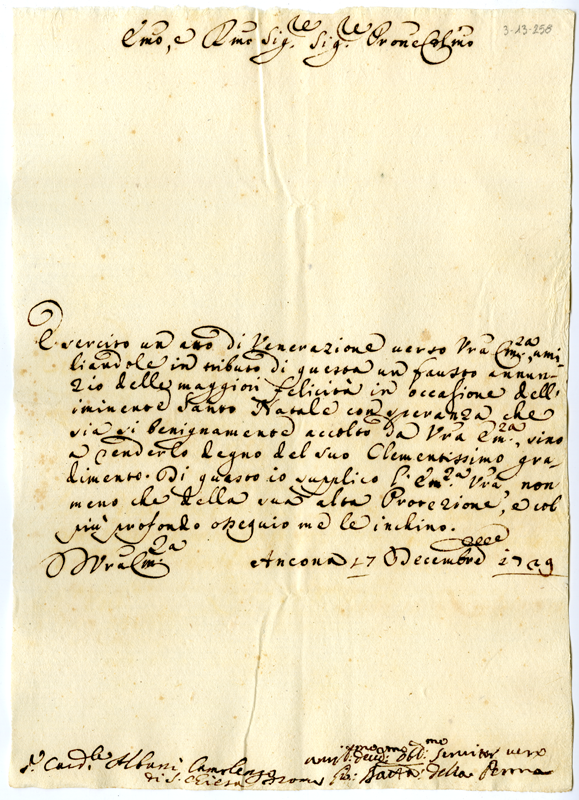 3-13-258
Emo, e Rmo Sig.re Sig.re Prone Colmo
Esercito un atto di Venerazione verso Vra Em.za, umi-
liandole in tributo di questa un fausto annun-
zio delle maggiori felicità in occasione dell'
iminente Santo Natale con speranza che
sia si benignamente accolto da Vra Em.za, sino
a renderlo degno del suo Clementissimo gra-
dimento. Di questo io supplico l'Em.za Vra non
meno che della sua alta Protezione, e col
più profondo ossequio me le inchino.
D Vra Em.za
Ancona 17 Decembre 1729
Card.le Albani Camerlengo
di S. Chiesa Roma
Umil.mo Dev.mo Obl.mo Servitor vero
Gio: Batta della Penna